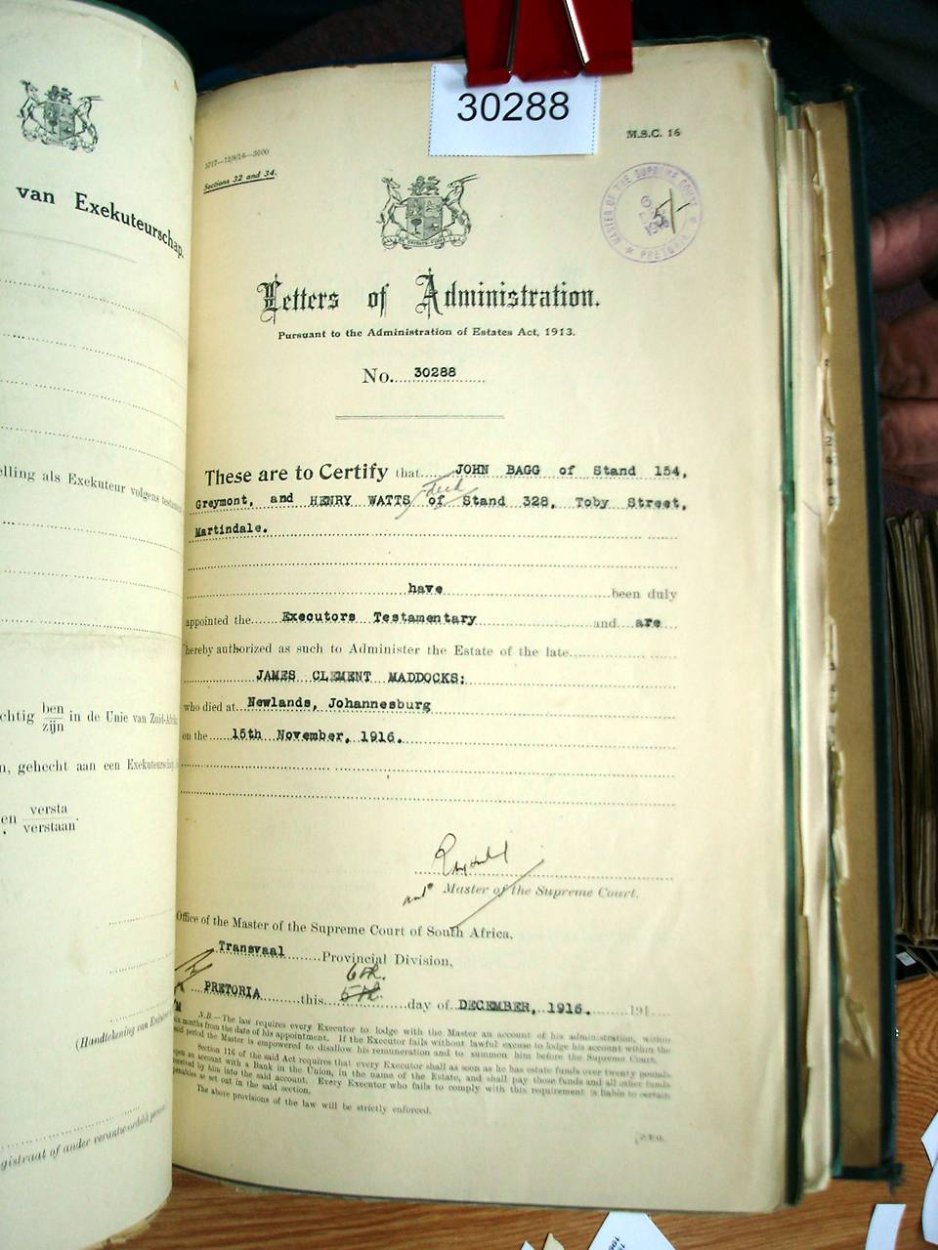 van Exekuteurschap.
elling als Exekuteur volgens
ben
chtig zijn in de Unie van Zuid-Afrika
n, gehecht aan een Exekuteurschap
en versta
verstaan
(Handtekening van
gistraat of ander verantwoordelijk
30288
M.S.C. 16
Sections 32 and 34.
MASTER OF THE SUPREME COURT
PRETORIA
Letters of Administration.
Pursuant to the Administration of Estates Act, 1913.
No. 30288
These are to Certify that JOHN BAGG of Stand 154,
Greymont, and HENRY WATTS of Stand 328, Toby Street,
Martindale.
have been duly
appointed the Executors Testamentary and are
hereby authorized as such to Administer the Estate of the late
JAMES CLEMENT MADDOCKS;
who died at Newlands, Johannesburg
on the 15th November, 1916.
Master of the Supreme Court.
Office of the Master of the Supreme Court of South Africa,
Transvaal Provincial Division,
6th.
PRETORIA this 5th day of DECEMBER, 1916. 191
N.B.—The law requires every Executor to lodge with the Master an account of his administration, within
six months from the date of his appointment. If the Executor fails without lawful excuse to lodge his account within the
said period the Master is empowered to disallow his remuneration and to summon him before the Supreme Court.
Section 116 of the said Act requires that every Executor shall as soon as he has estate funds over twenty pounds
open an account with a Bank in the Union, in the name of the Estate, and shall pay those funds and all other funds
received by him into the said account. Every Executor who fails to comply with this requirement is liable to certain
penalties as set out in the said section.
The above provisions of the law will be strictly enforced.